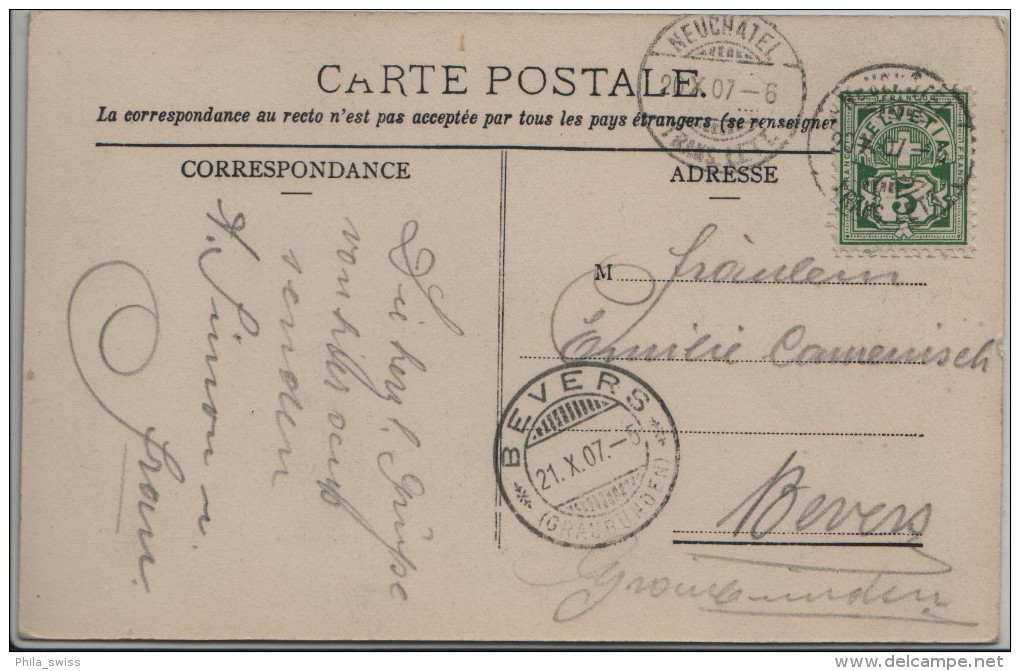 CARTE POSTALE.
La correspondance au recto n'est pas acceptée par tous les pays étrangers (se renseigner
CORRESPONDANCE
ADRESSE
NEUCHATEL
X.07-6
HELVETIA
FRANCO
5
M Fräulein
Emilie Camenisch
Bevers
Graubünden
BEVERS
21.X.07.-5
(GRAUBÜNDEN)
Die herzl. Grüsse
von hier aus
senden
A. Simon u.
Frau.
Phila_swiss
www.delcampe.net